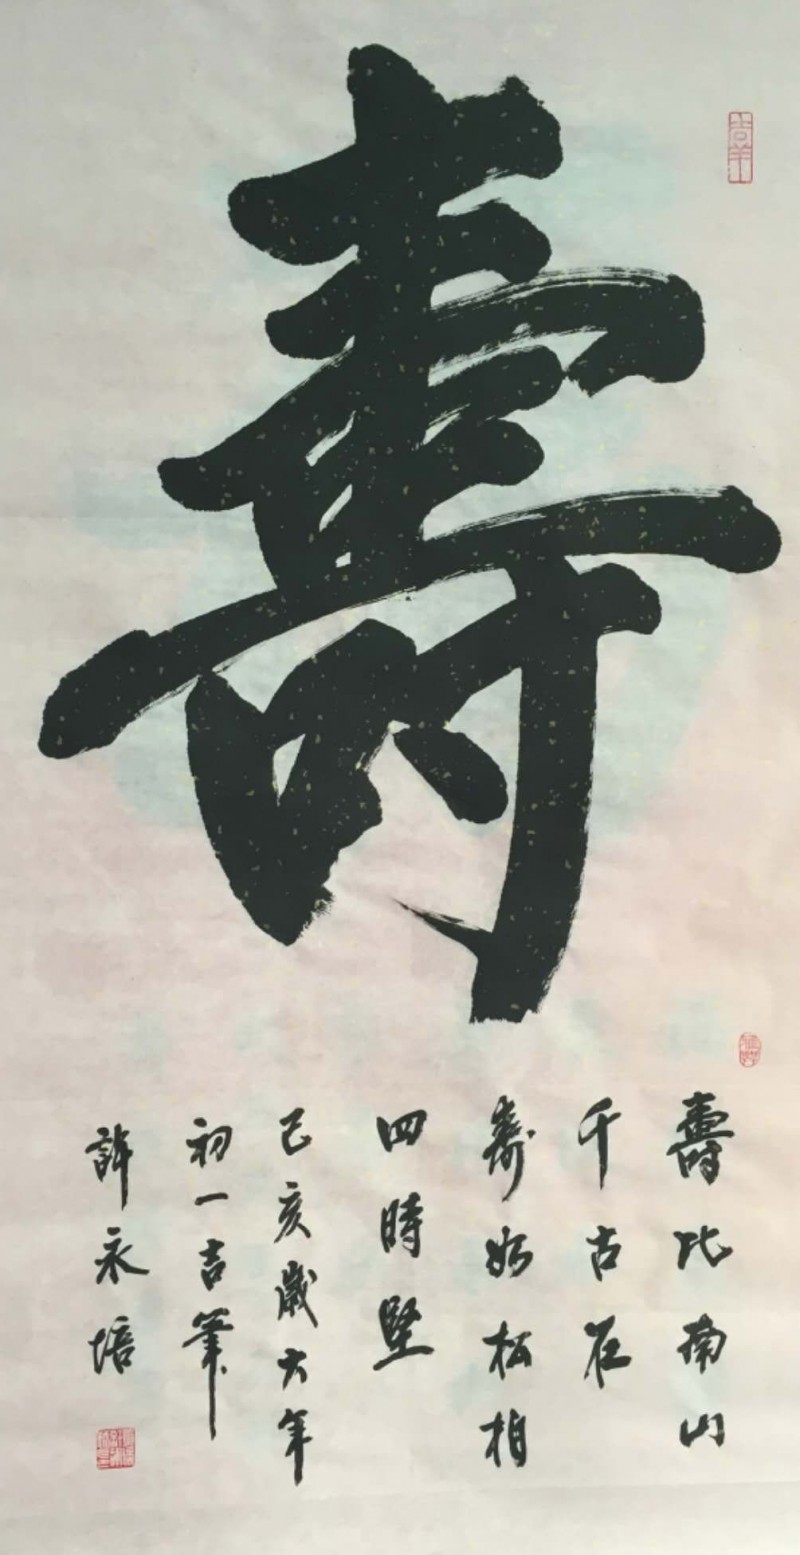 壽
壽比南山
千古在
壽如松柏
四時堅
己亥歲大年
初一吉筆
許永培